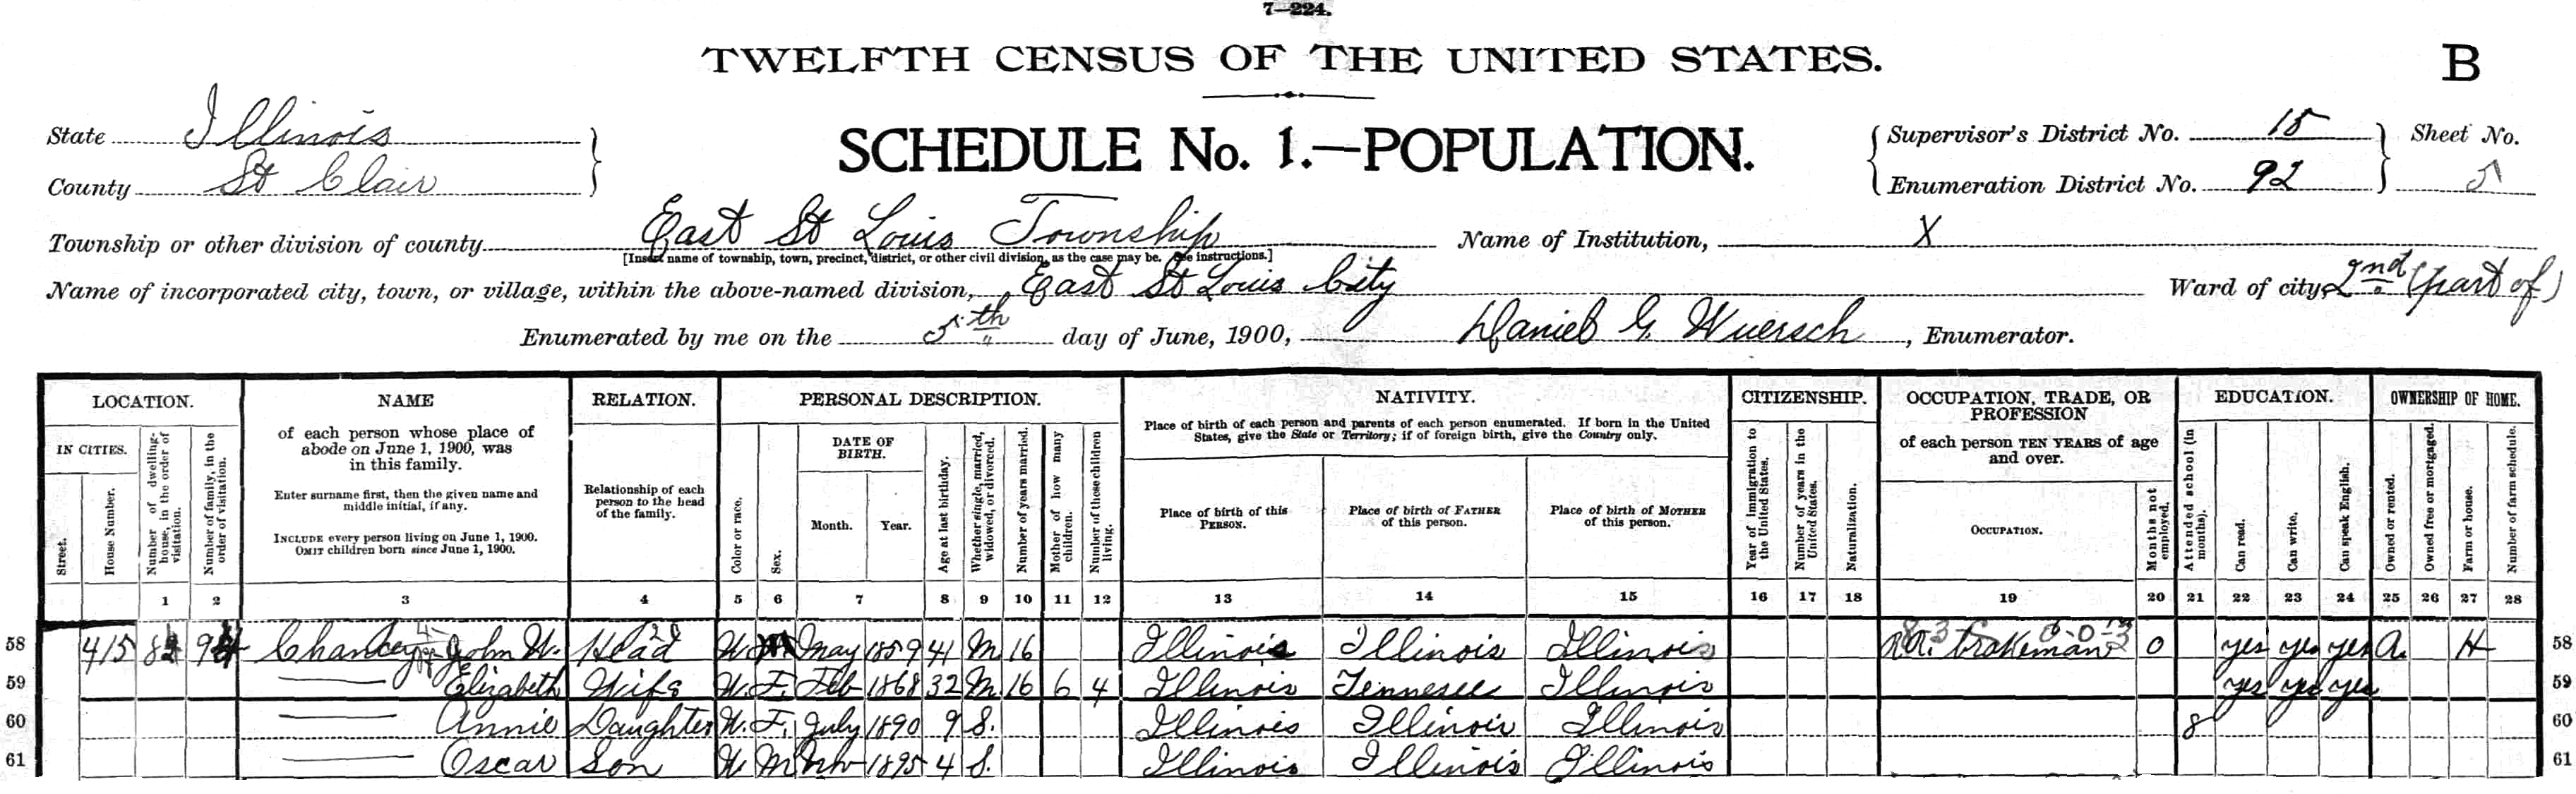 7—224.
TWELFTH CENSUS OF THE UNITED STATES.
B
State Illinois
County St Clair
SCHEDULE No. 1.—POPULATION.
Supervisor's District No. 15
Enumeration District No. 92
Sheet No.
5
Township or other division of county East St Louis Township
[Insert name of township, town, precinct, district, or other civil division, as the case may be. See instructions.]
Name of Institution, X
Name of incorporated city, town, or village, within the above-named division, East St Louis City
Ward of city, 2nd (part of)
Enumerated by me on the 5th day of June, 1900, Daniel G. Wuersch, Enumerator.
LOCATION.
IN CITIES.
Street.
House Number.
Number of dwelling-house, in the order of visitation.
Number of family, in the order of visitation.
NAME
of each person whose place of
abode on June 1, 1900, was
in this family.
Enter surname first, then the given name and
middle initial, if any.
INCLUDE every person living on June 1, 1900.
OMIT children born since June 1, 1900.
RELATION.
Relationship of each
person to the head
of the family.
PERSONAL DESCRIPTION.
Color or race.
Sex.
DATE OF
BIRTH.
Month.
Year.
Age at last birthday.
Whether single, married, widowed, or divorced.
Number of years married.
Mother of how many children.
Number of these children living.
NATIVITY.
Place of birth of each person and parents of each person enumerated. If born in the United
States, give the State or Territory; if of foreign birth, give the Country only.
Place of birth of this
PERSON.
Place of birth of FATHER
of this person.
Place of birth of MOTHER
of this person.
CITIZENSHIP.
Year of immigration to the United States.
Number of years in the United States.
Naturalization.
OCCUPATION, TRADE, OR
PROFESSION
of each person TEN YEARS of age
and over.
OCCUPATION.
Months not employed.
EDUCATION.
Attended school (in months).
Can read.
Can write.
Can speak English.
OWNERSHIP OF HOME.
Owned or rented.
Owned free or mortgaged.
Farm or house.
Number of farm schedule.
1 2 3 4 5 6 7 8 9 10 11 12 13 14 15 16 17 18 19 20 21 22 23 24 25 26 27 28
58 415 Chancey John W. Head W. M May 1859 41 M 16 Illinois Illinois Illinois R.R. brakeman 0 yes yes yes R. H 58
59 Elizabeth Wife W. F. Feb 1868 32 M 16 6 4 Illinois Tennesee Illinois yes yes yes 59
60 Annie Daughter W. F. July 1890 9 S. Illinois Illinois Illinois 8 60
61 Oscar Son W. M Nov 1895 4 S. Illinois Illinois Illinois 61